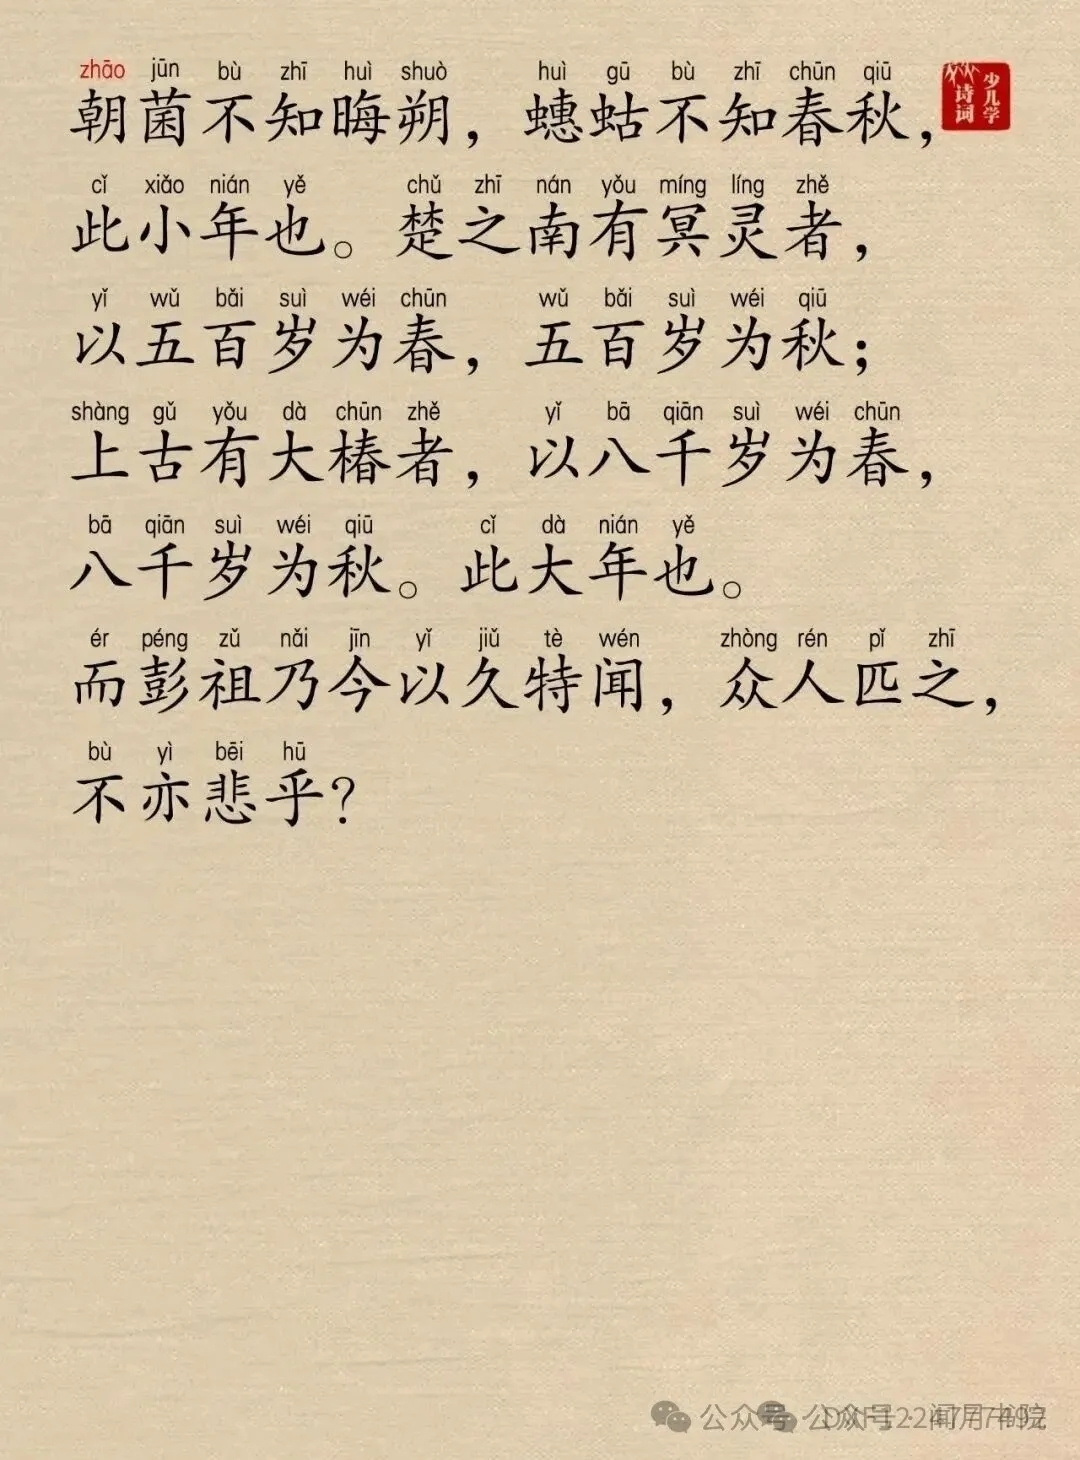 zhāo jūn bù zhī huì shuò huì gū bù zhī chūn qiū
朝菌不知晦朔，蟪蛄不知春秋，
少儿学诗词
cǐ xiǎo nián yě chǔ zhī nán yǒu míng líng zhě
此小年也。楚之南有冥灵者，
yǐ wǔ bǎi suì wéi chūn wǔ bǎi suì wéi qiū
以五百岁为春，五百岁为秋；
shàng gǔ yǒu dà chūn zhě yǐ bā qiān suì wéi chūn
上古有大椿者，以八千岁为春，
bā qiān suì wéi qiū cǐ dà nián yě
八千岁为秋。此大年也。
ér péng zǔ nǎi jīn yǐ jiǔ tè wén zhòng rén pǐ zhī
而彭祖乃今以久特闻，众人匹之，
bù yì bēi hū
不亦悲乎？
公众号 公众号